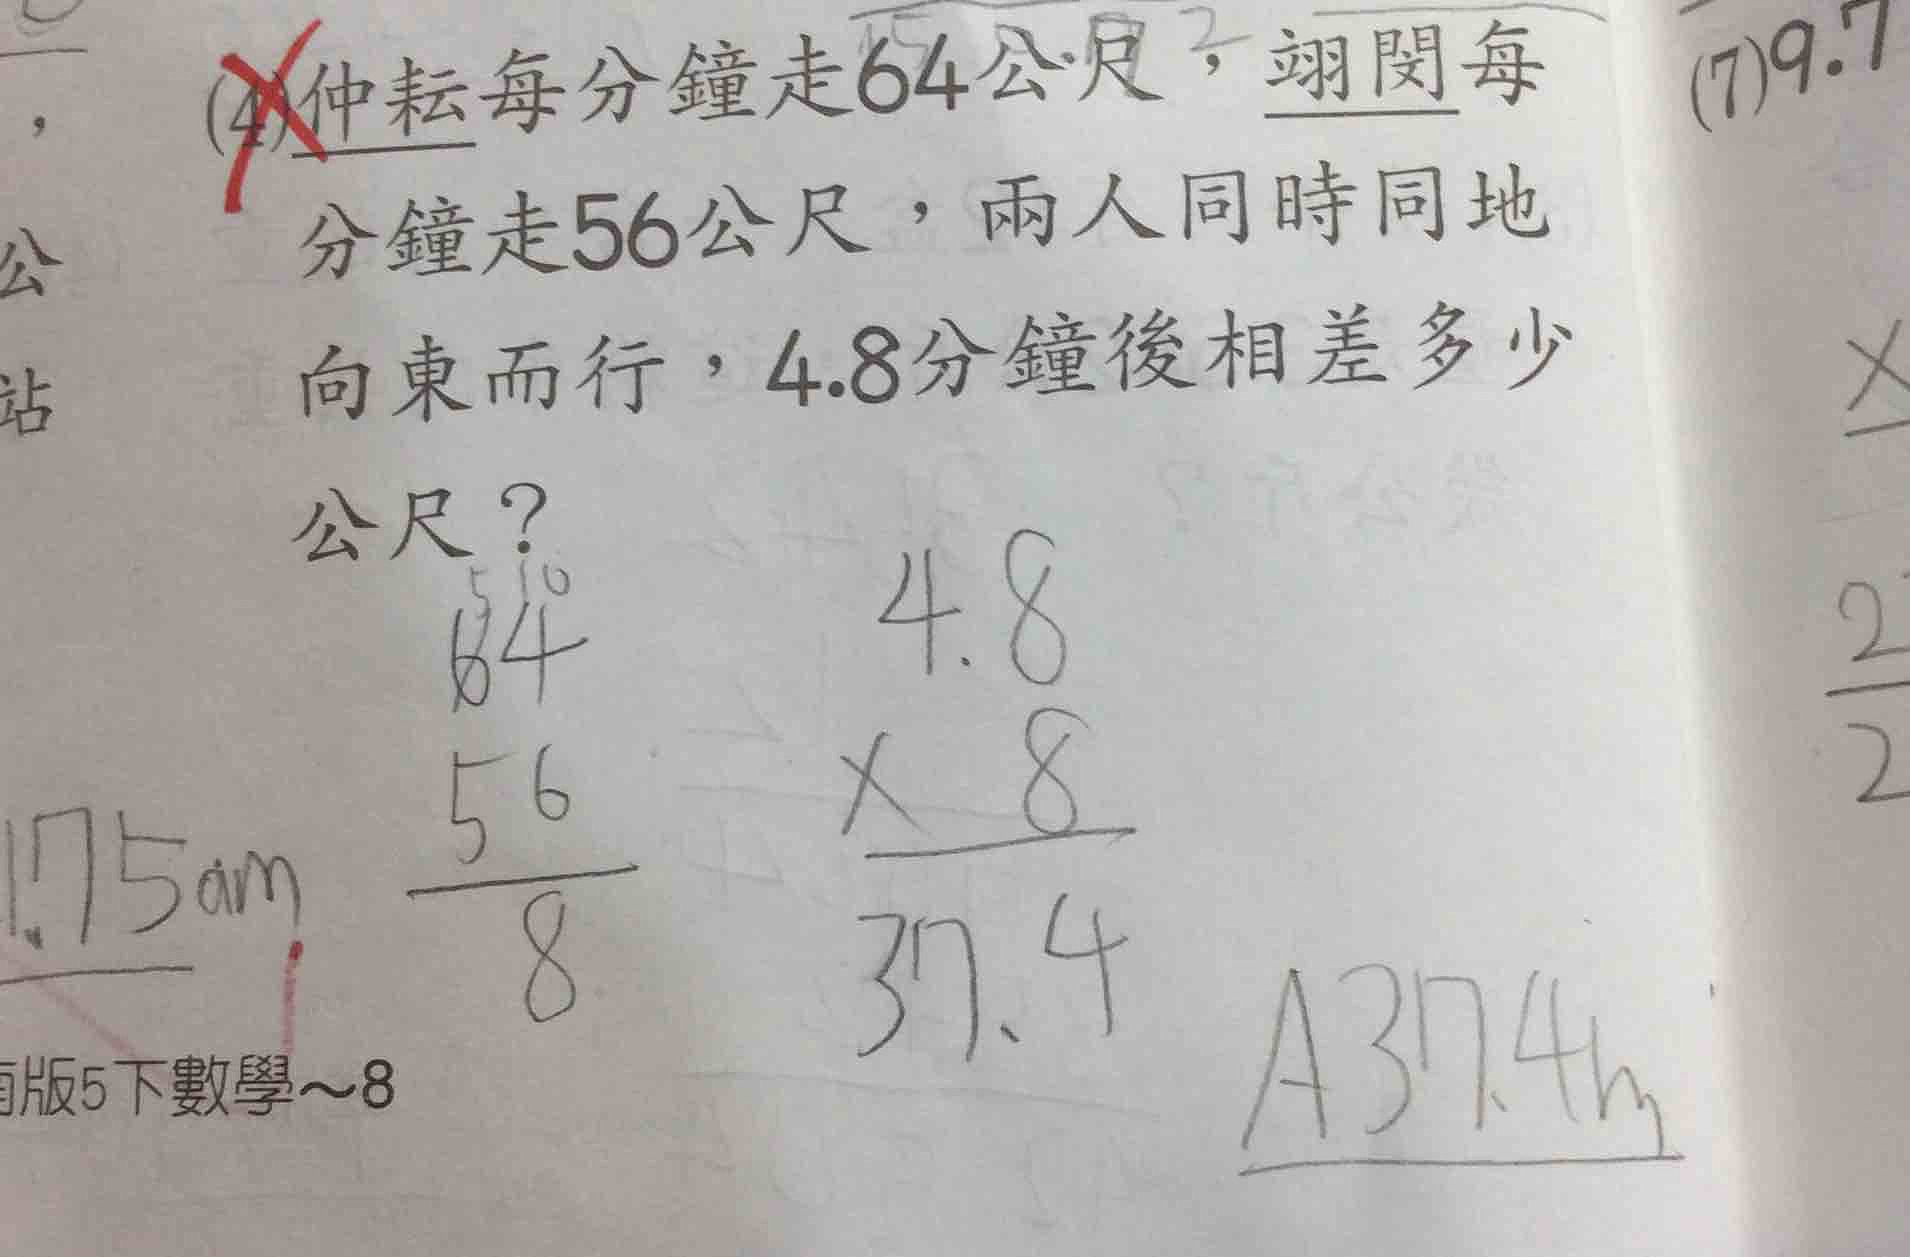 (4)仲耘每分鐘走64公尺，翊閔每
分鐘走56公尺，兩人同時同地
向東而行，4.8分鐘後相差多少
公尺？
5 10
64
56
8
4.8
× 8
37.4
A37.4m
1.75am
版5下數學～8
，
公
站
(7)9.7
×
2
2